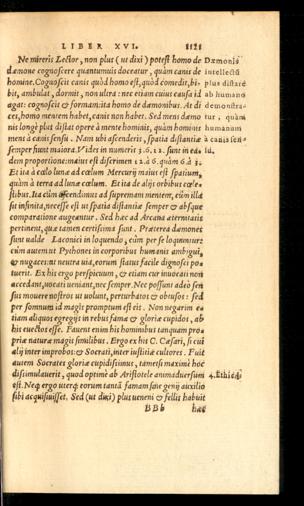 LIBER XVI. 1121
Ne mireris Lector, non plus (ut dixi) potest homo de
dæmone cognoscere quantumuis doceatur, quàm canis de
homine. Cognoscit canis quòd homo est, quòd comedit, bi-
bit, ambulat, dormit, non ultra: nec etiam cuius causa id
agat: cognoscit & formam: ita homo de dæmonibus. At di
ces, homo mentem habet, canis non habet. Sed mens dæmo
nis longè plus distat opere à mente hominis, quàm hominis
mens à canis sensu. Nam ubi ascenderit, spatia distantiæ
semper sunt maiora. Vides in numeris 3. 6. 12. sunt in ea-
dem proportione: maius est discrimen 12. à 6. quàm 6. à 3.
Et ita à cœlo lunæ ad cœlum Mercurij maius est spatium,
quàm à terra ad lunæ cœlum. Et ita de alijs orbibus cœle-
stibus. Ita cùm ascendimus ad supremam mentem, cùm illa
sit infinita, necesse est ut spatia distantiæ semper & absque
comparatione augeantur. Sed hæc ad Arcana æternitatis
pertinent, quæ tamen certissima sunt. Præterea dæmones
sunt ualde Laconici in loquendo, cùm per se loquuntur:
cùm autem ut Pythones in corporibus humanis ambigui,
& nugaces: at neutra uia, eorum status facile dignosci po-
tuerit. Ex his ergo perspicuum, & etiam cur inuocati non
accedant, uocati ueniant, nec semper. Nec possunt adeò sen
sus mouere nostros ut uolunt, perturbatos & obtusos: sed
per somnum id magis promptum est eis. Non negarim e-
tiam aliquos egregijs in rebus fama & gloriæ cupidos, ab
his euectos esse. Fauent enim his hominibus tanquam pro-
priæ naturæ magis similibus. Ergo ex his C. Cæsari, si cui
alij inter improbos: & Socrati, inter iustitiæ cultores. Fuit
autem Socrates gloriæ cupidissimus, tametsi maximè hoc
dissimulauerit, quod optimè ab Aristotele animaduersum
est. Neque ergo uterque eorum tantã famam sine genij auxilio
sibi acquisiuisset. Sed (ut dixi) plus ueneni & fellis habuit
BBb hæc
Dæmonis
intellectũ
plus distare
ab humano
demonstra-
tur, quàm
humanum
à canis sen-
su.
4. Ethic.